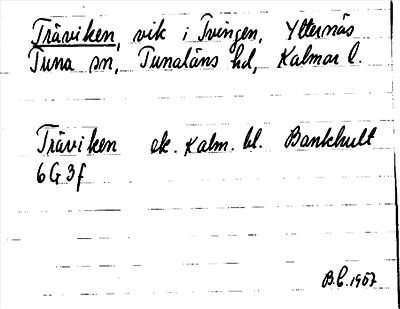 Träviken, vik i Tvingen, Ytternäs
Tuna sn, Tunaläns hd, Kalmar l.
Träviken ek. Kalm. bl. Bankhult
6G3f
B.C. 1957